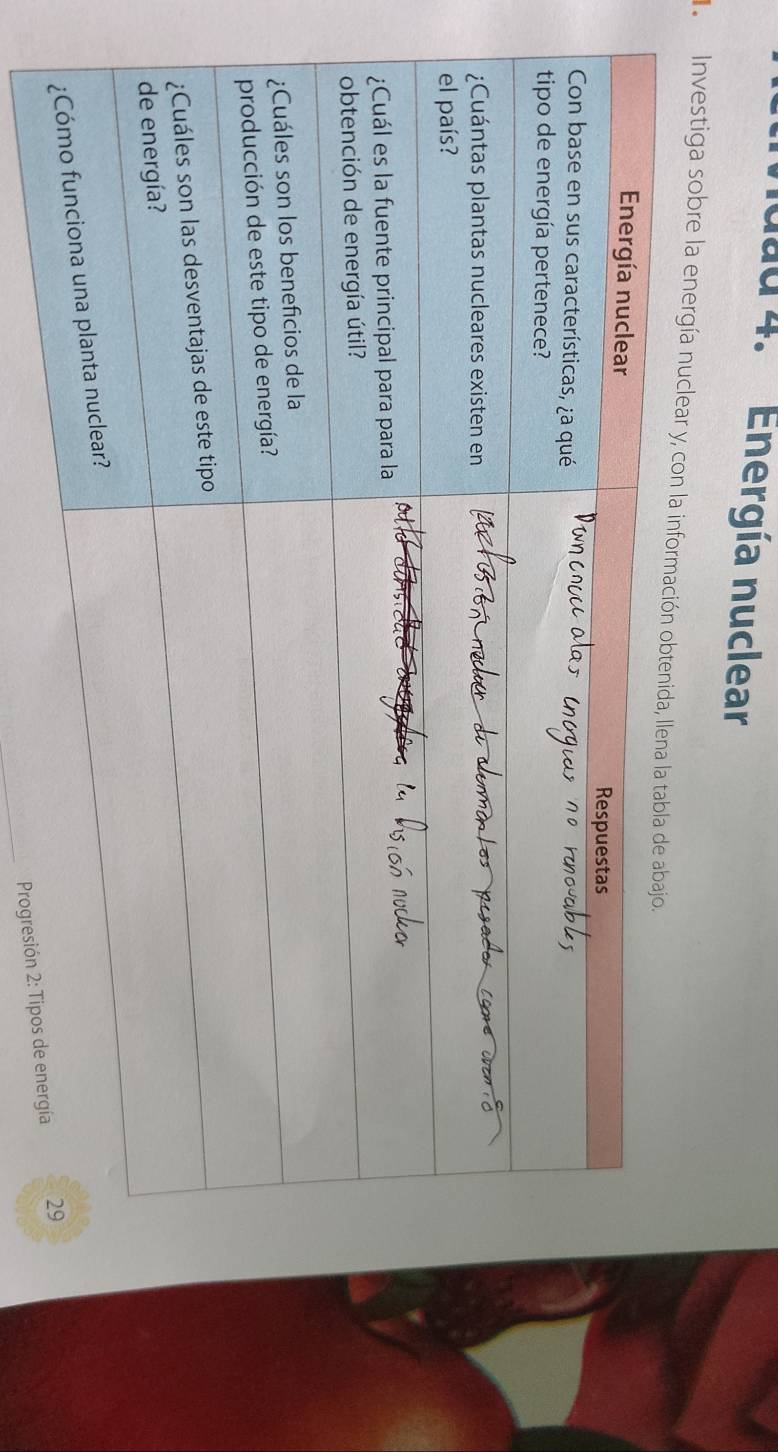 4. Energía nuclear
1. Investiga sobre la energía nuclear y, con la información obtenida, llena la tabla de abajo.
Energía nuclear
Respuestas
Con base en sus características, ¿a qué
tipo de energía pertenece?
no renovables
¿Cuántas plantas nucleares existen en
el país?
pesados como
¿Cuál es la fuente principal para para la
obtención de energía útil?
la
¿Cuáles son los beneficios de la
producción de este tipo de energía?
¿Cuáles son las desventajas de este tipo
de energía?
¿Cómo funciona una planta nuclear?
Progresión 2: Tipos de energía
29